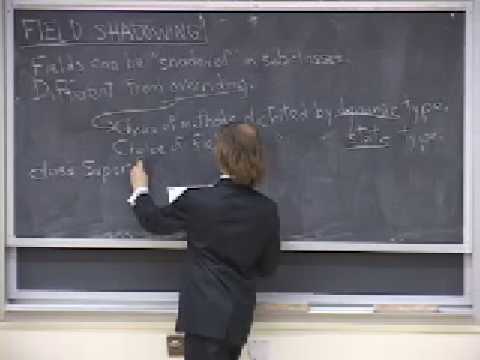 FIELD SHADOWING!
Fields can be "shadowed" in subclasses.
Different from overriding.
Choice of methods dictated by dynamic type.
Choice of " static type.
class Super